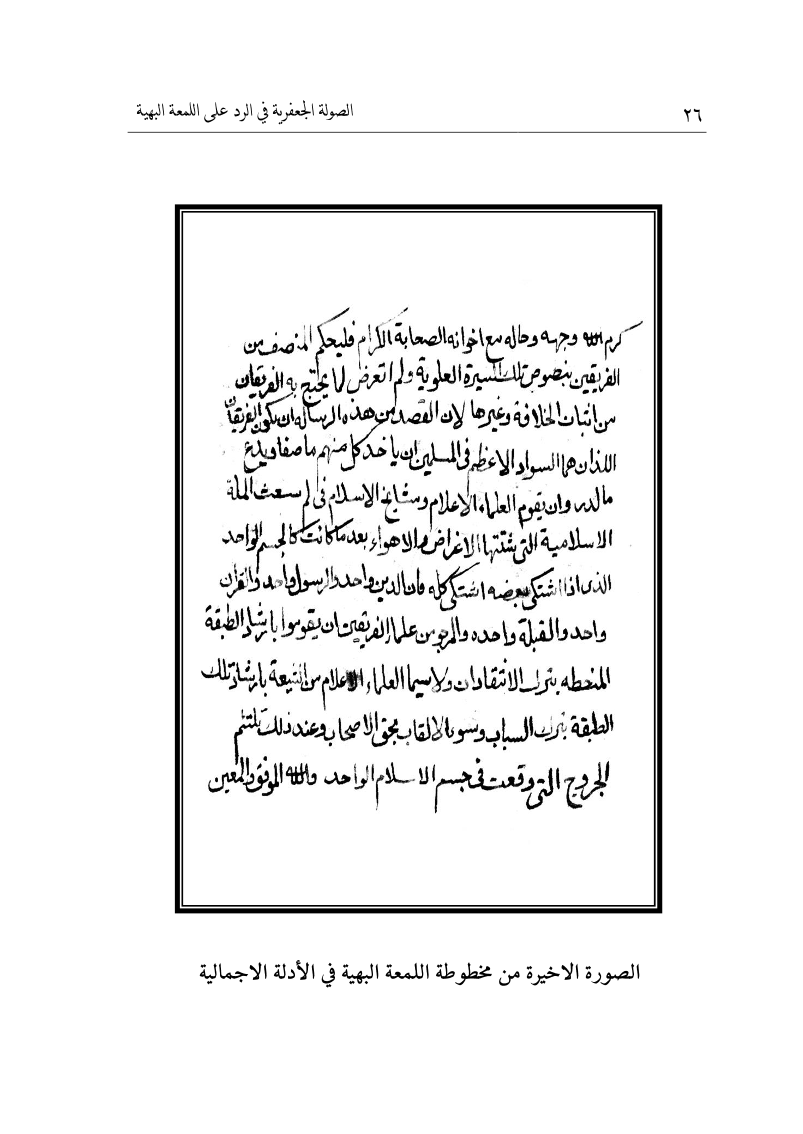 ٢٦ الصولة الجعفرية في الرد على اللمعة البهية
كرم الله وجهه وحاله مع اخوانه الصحابة الكرام فليحكم المنصف من
الفريقين بنصوص تلك السيرة العلوية ولم اتعرض لما يحتج به الفريقان
من اثبات الخلافة وغيرها لان القصد من هذه الرساله ان يكون الفريقان
اللذان هما السواد الاعظم في المسلمين ان ياخذ كل منهم ما صفا ويدع
ما كدر وان يقوم العلماء الاعلام ومشايخ الاسلام في لم شعث الملة
الاسلامية التي شتتها الاغراض والاهواء بعد ما كانت كالجسم الواحد
الذى اذا اشتكى بعضه اشتكى كله فان الدين واحد والرسول واحد والقرآن
واحد والقبلة واحده والمرجو من علماء الفريقين ان يقوموا بارشاد الطبقة
المنحطه بترك الانتقادات ولا سيما العلماء الاعلام من الشيعة بارشاد تلك
الطبقة بترك السباب وسوء الالقاب بحق الاصحاب وعند ذلك تلتئم
الجروح التى وقعت في جسم الاسلام الواحد والله الموفق والمعين
الصورة الاخيرة من مخطوطة اللمعة البهية في الأدلة الاجمالية